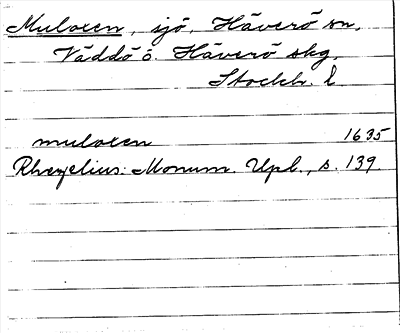 Muloxen, sjö, Häverö sn,
Väddö o. Häverö skg,
Stockh. l
muloxen 1635
Rhezelius: Monum. Upl., s. 139.